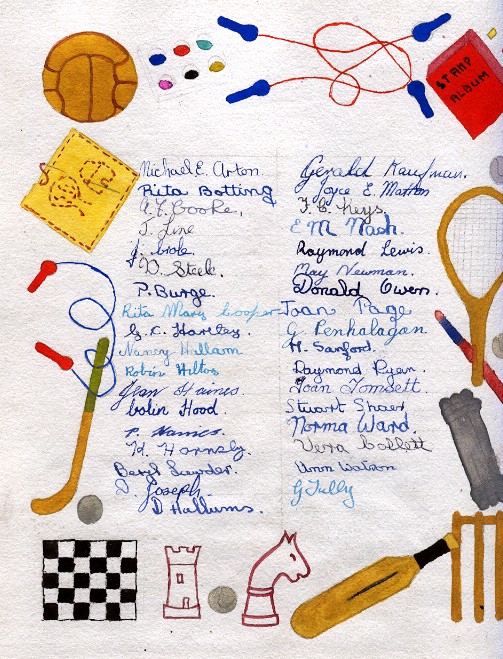 STAMP
ALBUM
Michael E. Arton.
Rita Botting
Cooke,
J. Line
J. brole
D. Steele.
P. Burge.
Rita Mary Cooper
G. C. Hartley.
Nancy Hallam
Robin Hilton
Jean Haines.
Colin Hood.
P. Harries.
H. Hornsby.
Beryl Lawder.
D. Joseph.
D Hallums.
Gerald Kaufman.
Joyce E. Matton
F. C. Keys.
E M Nash.
Raymond Lewis.
May Newman.
Donald Owen.
Joan Page
G. Penhalagan.
M. Sanford.
Raymond Ryan.
Joan Tomsett.
Stuart Shaer
Norma Ward.
Vera Collett
Watson
G Tully